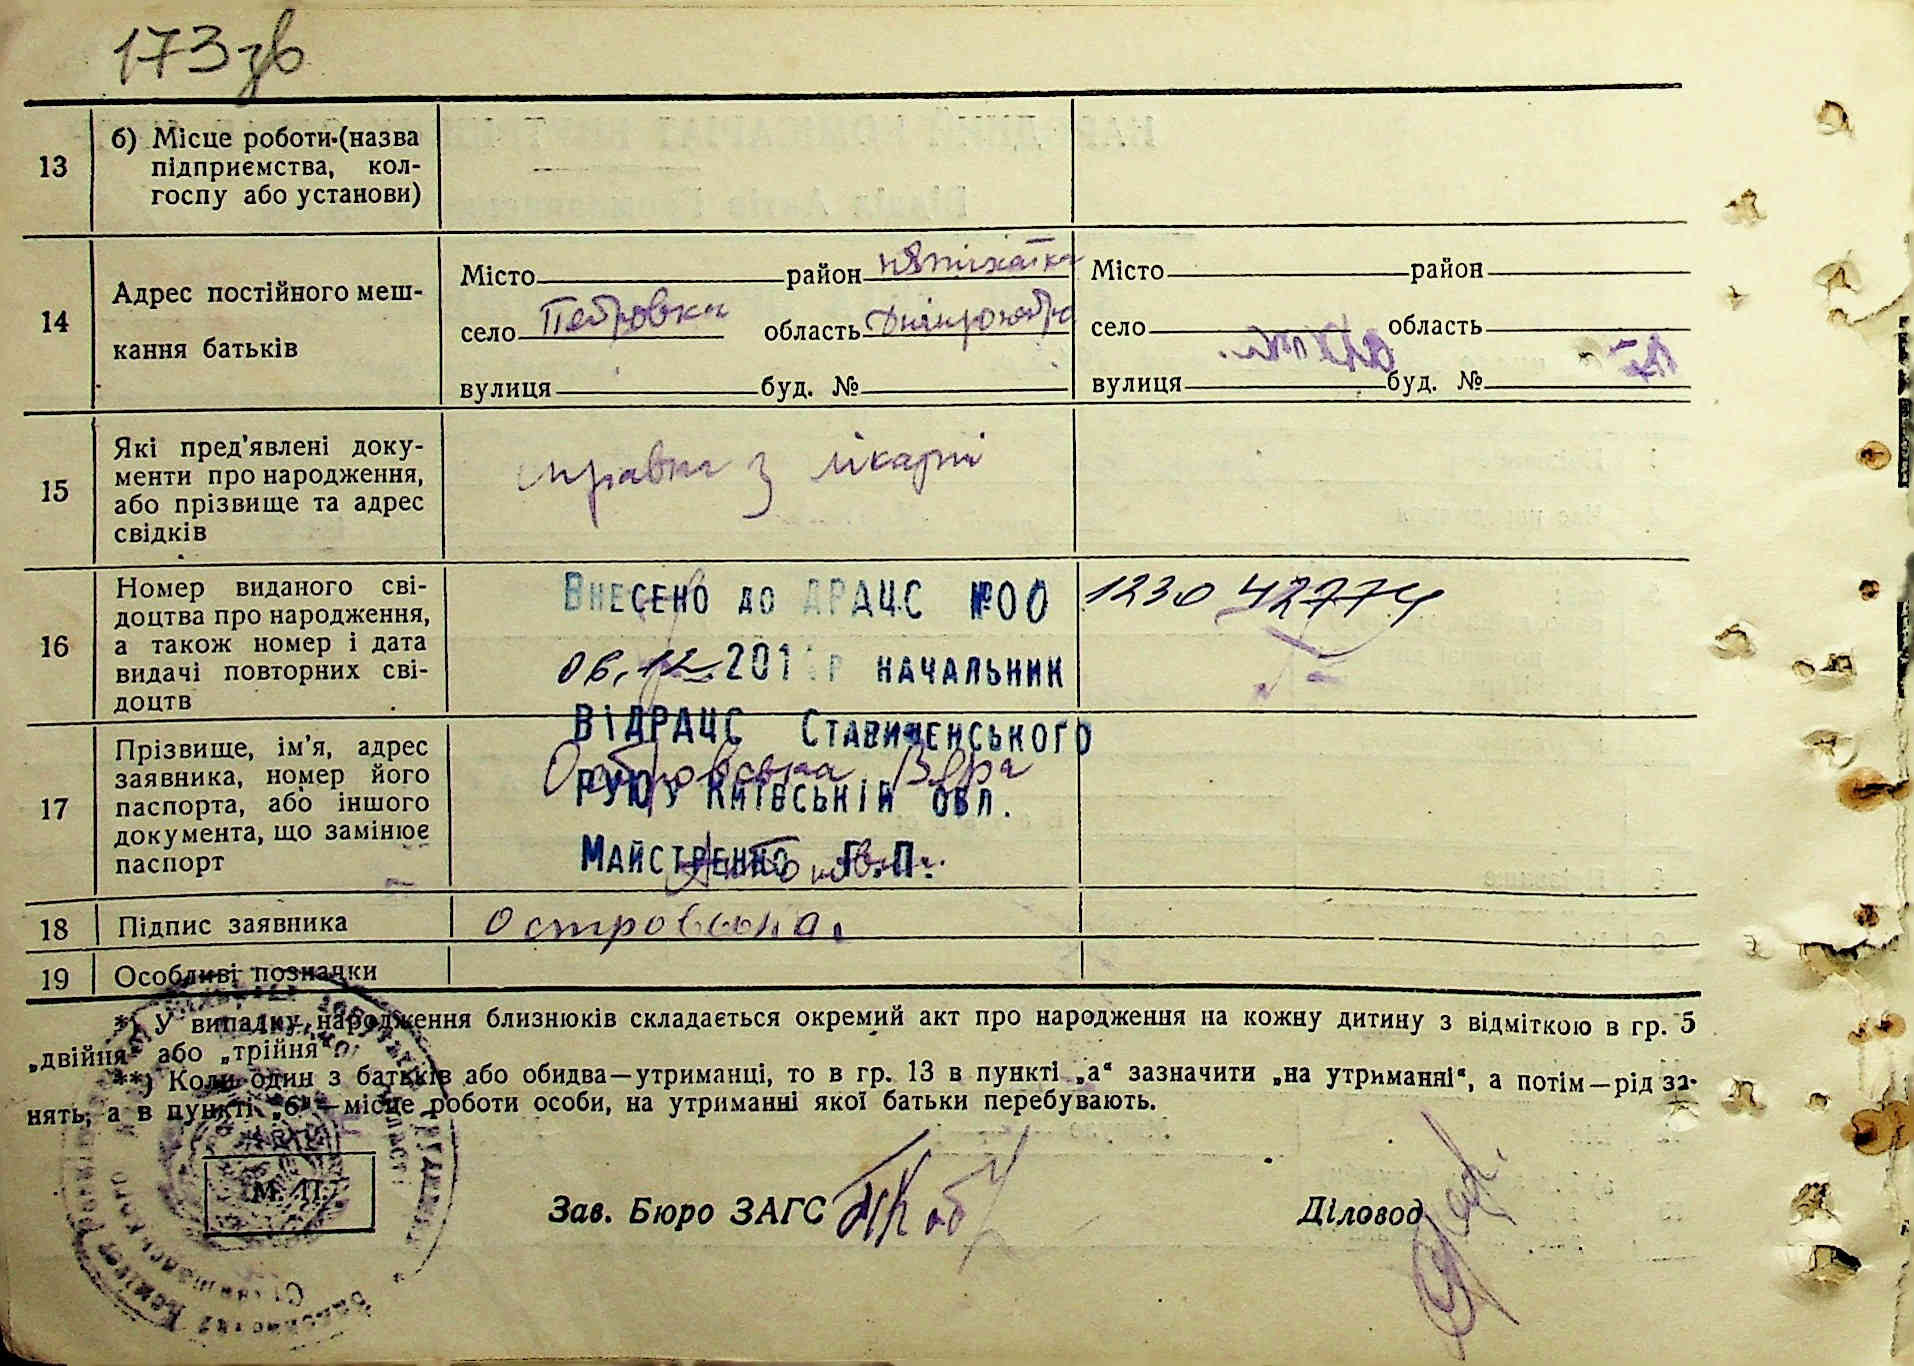 173 зв
13
б) Місце роботи (назва
підприємства, кол-
госпу або установи)
14
Адрес постійного меш-
кання батьків
Місто район
село Петровка область
вулиця буд. №
Місто район
село область
вулиця буд. №
15
Які пред'явлені доку-
менти про народження,
або прізвище та адрес
свідків
справка з лікарні
16
Номер виданого сві-
доцтва про народження,
а також номер і дата
видачі повторних сві-
доцтв
Внесено до ДРАЦС №00 1230 42774
06.12.201 р начальник
17
Прізвище, ім'я, адрес
заявника, номер його
паспорта, або іншого
документа, що замінює
паспорт
ВіДРАЦС Ставиченського
Островська Віра
РУЮ у Київській обл.
Майстренно Г.П.
18
Підпис заявника
Островська
19
Особливі позначки
*) У випадку народження близнюків складається окремий акт про народження на кожну дитину з відміткою в гр. 5
„двійня“ або „трійня“
**) Коли один з батьків або обидва—утриманці, то в гр. 13 в пункті „а“ зазначити „на утриманні“, а потім—рід за-
нять, а в пункті „б“—місце роботи особи, на утриманні якої батьки перебувають.
М. П.
Зав. Бюро ЗАГС
Діловод